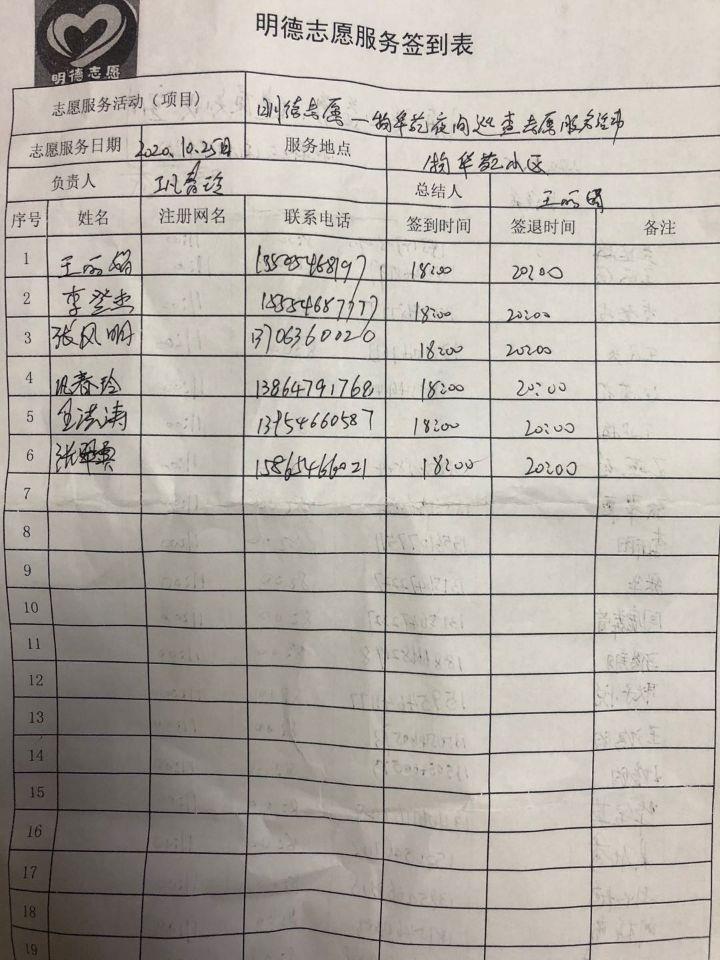 明德志愿
明德志愿服务签到表
志愿服务活动（项目） 明德志愿—物华苑夜间巡查志愿服务活动
志愿服务日期 2020.10.25日 服务地点 物华苑小区
负责人 巩春玲 总结人 王丽娟
序号 姓名 注册网名 联系电话 签到时间 签退时间 备注
1 王丽娟 18:00 20:00
2 李登杰 18:00 20:00
3 张凤明 13706360020 18:00 20:00
4 巩春玲 13864791768 18:00 20:00
5 13954660587 18:00 20:00
6 15865466021 18:00 20:00
7
8
9
10
11
12
13
14
15
16
17
18
19